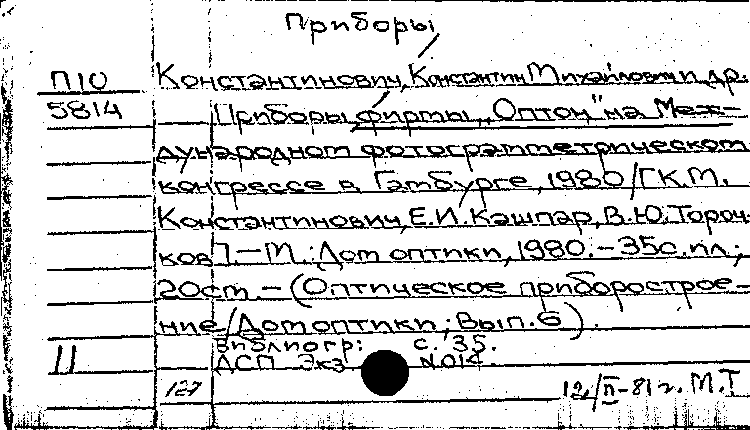 Приборы
П10 Константинович, Константин Михайлович и др.
5814 Приборы фирмы „Оптон" на Меж-
дународном фотограмметрическом
конгрессе в Гамбурге, 1980/[К.М.
Константинович, Е.И. Кашпар, В.Ю. Тороч-
ков]. – М.: Дом оптики, 1980. – 35с. ил.;
20см. – (Оптическое приборострое-
ние/Дом оптики; Вып. 6).
Библиогр: с. 35.
11 ДСП Экз N014.
127 12/II-81г. М.Т